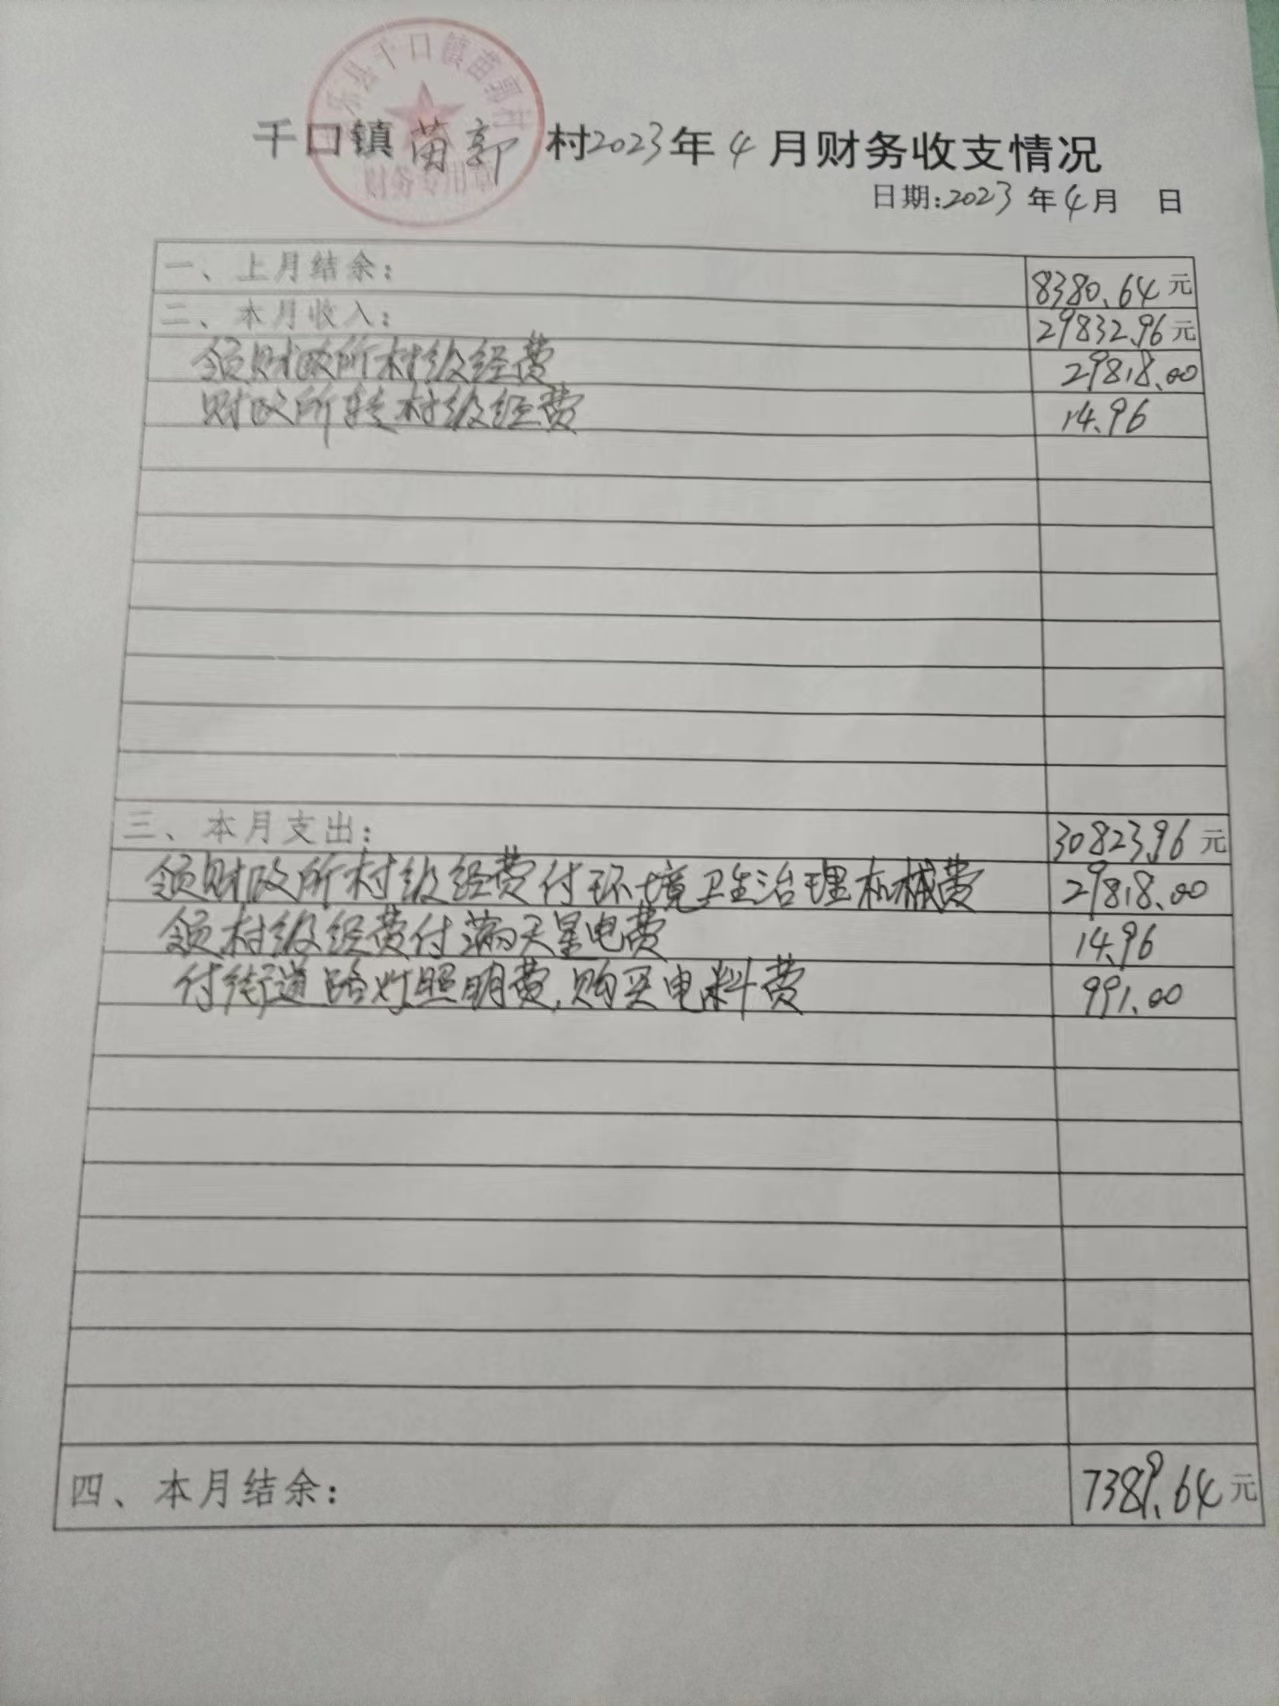 乐县千口镇苗郭村
财务专用章
千口镇苗郭村2023年4月财务收支情况
日期:2023年4月 日
一、上月结余: 8380.64元
二、本月收入: 29832.96元
领财政所村级经费 29818.00
财政所转村级经费 14.96
三、本月支出: 30823.96元
领财政所村级经费付环境卫生治理机械费 29818.00
领村级经费付满天星电费 14.96
付街道路灯照明费,购买电料费 991.00
四、本月结余: 7389.64元